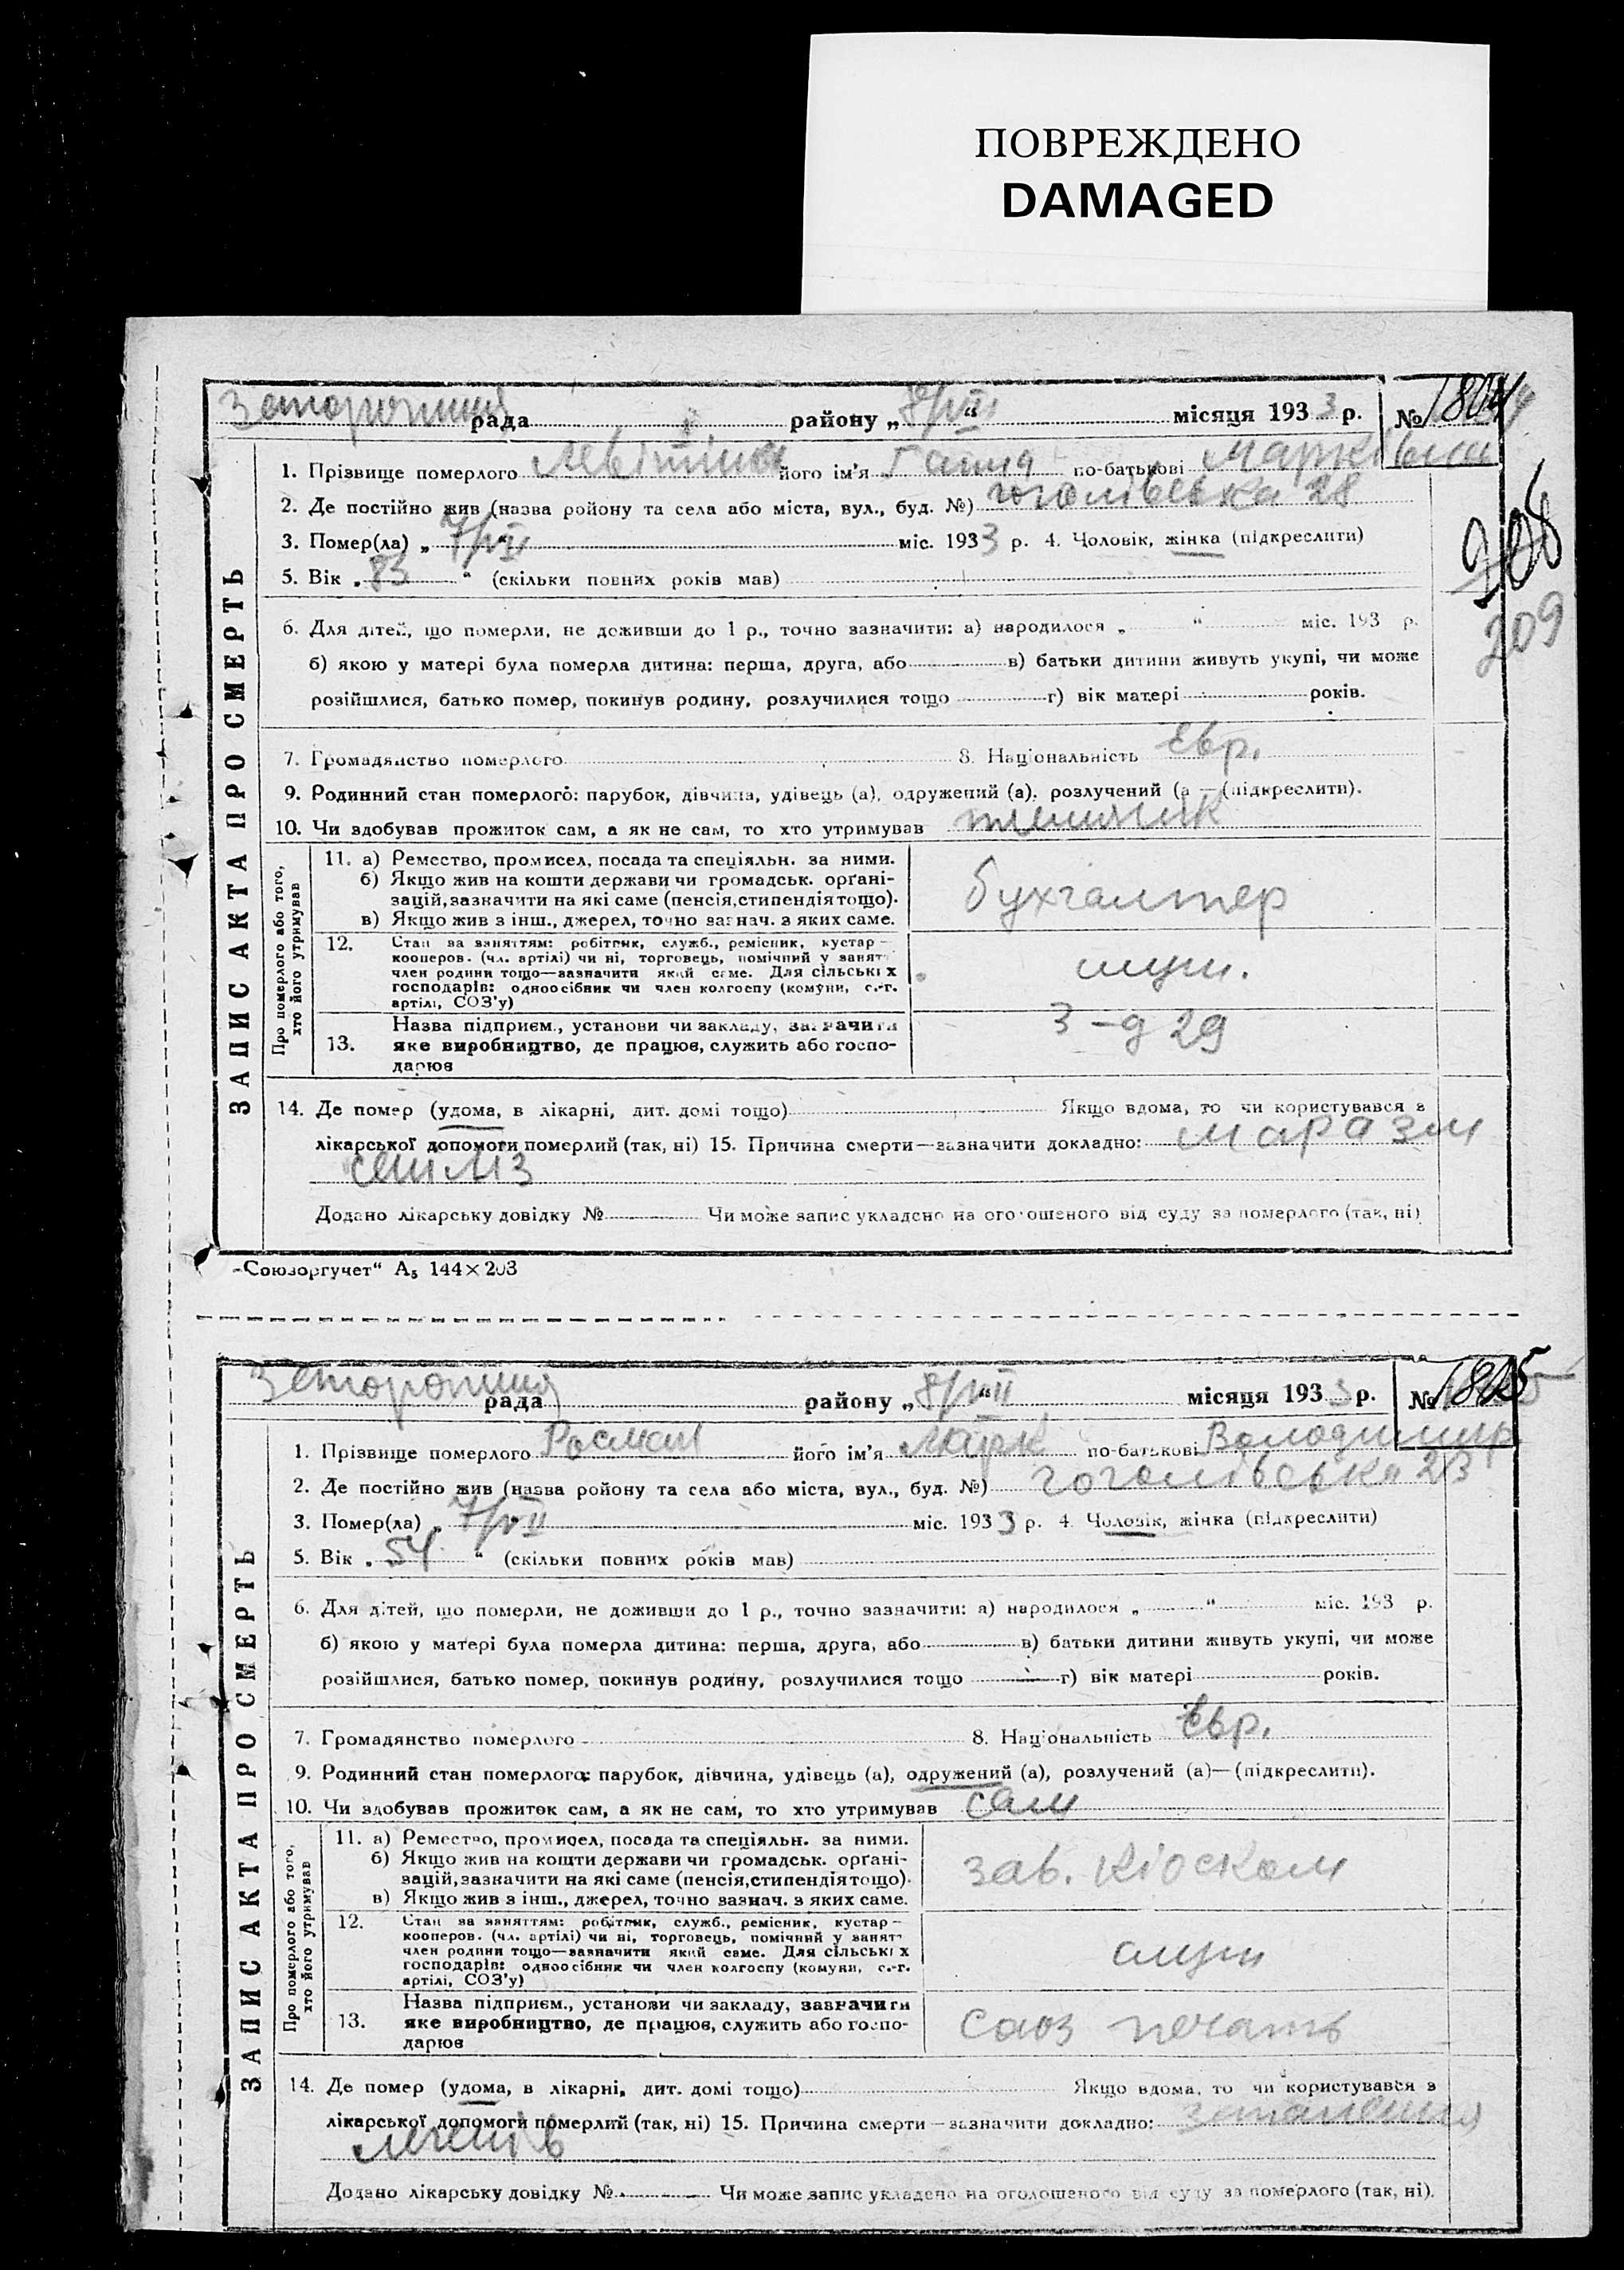 ПОВРЕЖДЕНО
DAMAGED
ЗАПИС АКТА ПРО СМЕРТЬ
рада района „8/VII“ місяця 1933 р. № 1804
1. Прізвище померлого Левітіна його ім'я Ганна по-батькові Марківна
2. Де постійно жив (назва ройону та села або міста, вул., буд. №) гоголівська 28
3. Помер(ла) „7/VII“ міс. 1933 р. 4. Чоловік, жінка (підкреслити)
5. Вік „83“ (скільки повних років мав)
208
209
6. Для дітей, що померли, не доживши до 1 р., точно зазначити: а) народилося „ “ міс. 193 р.
б) якою у матері була померла дитина: перша, друга, або в) батьки дитини живуть укупі, чи може
розійшлися, батько помер, покинув родину, розлучилися тощо г) вік матері років.
7. Громадянство померлого 8. Національність Євр.
9. Родинний стан померлого: парубок, дівчина, удівець (а), одружений (а), розлучений (а —(підкреслити).
10. Чи здобував прожиток сам, а як не сам, то хто утримував
Про померлого або того, хто його утримував
11. а) Ремество, промисел, посада та спеціяльн. за ними.
б) Якщо жив на кошти держави чи громадськ. орґані-
зацій, зазначити на які саме (пенсія, стипендія тощо).
в) Якщо жив з інш., джерел, точно зазнач. з яких саме.
бухгалтер
12. Стан за заняттям: робітник, служб., ремісник, кустар—
кооперов. (чл. артілі) чи ні, торговець, помічний у занят
член родини тощо—зазначити який саме. Для сільських
господарів: одноосібник чи член колгоспу (комуни, с.-г.
артілі, СОЗ'у)
служ.
13. Назва підприєм., установи чи закладу, зазначити
яке виробництво, де працює, служить або госпо-
дарює
З-д 29
14. Де помер (удома, в лікарні, дит. домі тощо) Якщо вдома, то чи користувався з
лікарської допомоги померлий (так, ні) 15. Причина смерти—зазначити докладно: маразм
Додано лікарську довідку № Чи може запис укладено на оголошеного від суду за померлого (так, ні)
„Союзоргучет“ А5 144×203
ЗАПИС АКТА ПРО СМЕРТЬ
рада району „8/VII“ місяця 1933 р. № 1805
1. Прізвище померлого Росман його ім'я Марк по-батькові Володимир
2. Де постійно жив (назва ройону та села або міста, вул., буд. №) гоголівська 23
3. Помер(ла) „7/VII міс. 1933 р. 4. Чоловік, жінка (підкреслити)
5. Вік „54“ (скільки повних років мав)
6. Для дітей, що померли, не доживши до 1 р., точно зазначити: а) народилося „ “ міс. 193 р.
б) якою у матері була померла дитина: перша, друга, або в) батьки дитини живуть укупі, чи може
розійшлися, батько помер, покинув родину, розлучилися тощо г) вік матері років.
7. Громадянство померлого 8. Національність Євр.
9. Родинний стан померлого: парубок, дівчина, удівець (а), одружений (а), розлучений (а)—(підкреслити).
10. Чи здобував прожиток сам, а як не сам, то хто утримував сам
Про померлого або того, хто його утримував
11. а) Ремество, промисел, посада та спеціяльн. за ними.
б) Якщо жив на кошти держави чи громадськ. орґані-
зацій, зазначити на які саме (пенсія, стипендія тощо).
в) Якщо жив з інш., джерел, точно зазнач. з яких саме.
зав. кіоском
12. Стан за заняттям: робітник, служб., ремісник, кустар—
кооперов. (чл. артілі) чи ні, торговець, помічний у занят
член родини тощо—зазначити який саме. Для сільських
господарів: одноосібник чи член колгоспу (комуни, с.-г.
артілі, СОЗ'у)
служ
13. Назва підприєм., установи чи закладу, зазначити
яке виробництво, де працює, служить або госпо-
дарює
Союз печать
14. Де помер (удома, в лікарні, дит. домі тощо) Якщо вдома, то чи користувався з
лікарської допомоги померлий (так, ні) 15. Причина смерти—зазначити докладно: запалення
легенів
Додано лікарську довідку № Чи може запис укладено на оголошеного від суду за померлого (так, ні).